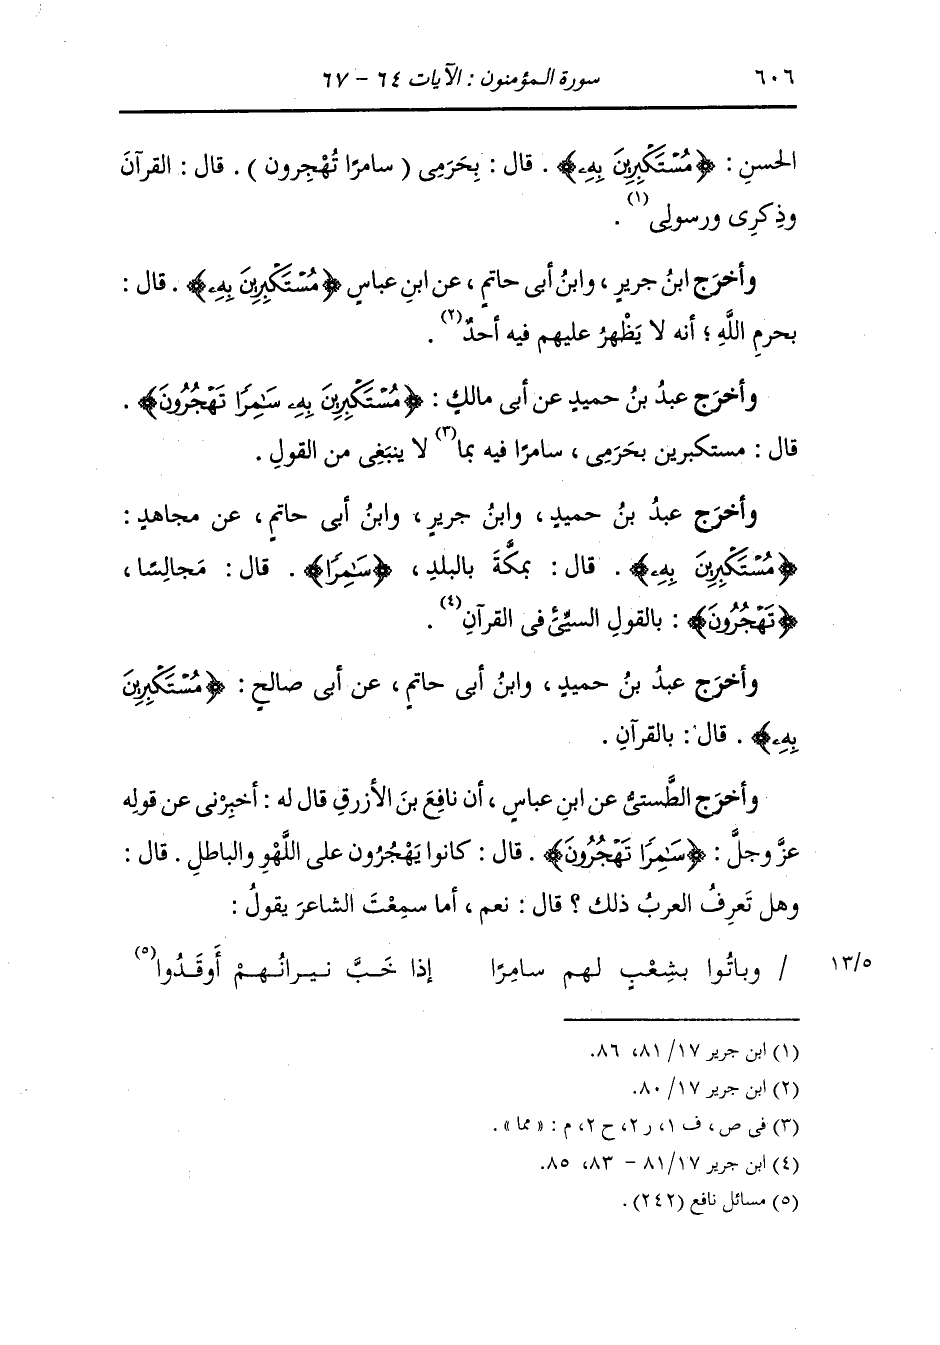 ٦٠٦ سورة المؤمنون : الآيات ٦٤ - ٦٧
الحسنِ : ﴿مُسْتَكْبِرِينَ بِهِۦ﴾ . قال : بِحَرَمِى ( سامرًا تُهْجِرون ) . قال : القرآنَ
وذِكرِى ورسولِى(١) .
وأخرَج ابنُ جريرٍ ، وابنُ أبى حاتمٍ ، عن ابنِ عباسٍ ﴿مُسْتَكْبِرِينَ بِهِۦ﴾ . قال :
بحرمِ اللَّهِ ؛ أنه لا يَظْهَرُ عليهم فيه أحدٌ(٢) .
وأخرَج عبدُ بنُ حميدٍ عن أبى مالكٍ : ﴿مُسْتَكْبِرِينَ بِهِۦ سَٰمِرًا تَهْجُرُونَ﴾ .
قال : مستكبرين بحَرَمِى ، سامرًا فيه بما(٣) لا ينبَغِى من القولِ .
وأخرَج عبدُ بنُ حميدٍ ، وابنُ جريرٍ ، وابنُ أبى حاتمٍ ، عن مجاهدٍ :
﴿مُسْتَكْبِرِينَ بِهِۦ﴾ . قال : بمكَّةَ بالبلدِ ، ﴿سَٰمِرًا﴾ . قال : مَجالِسًا ،
﴿تَهْجُرُونَ﴾ : بالقولِ السيِّئَ فى القرآنِ(٤) .
وأخرَج عبدُ بنُ حميدٍ ، وابنُ أبى حاتمٍ ، عن أبى صالحٍ : ﴿مُسْتَكْبِرِينَ
بِهِۦ﴾ . قال : بالقرآنِ .
وأخرَج الطَّستىُّ عن ابنِ عباسٍ ، أن نافِعَ بنَ الأزرقِ قال له : أخبِرْنى عن قولِه
عزَّ وجلَّ : ﴿سَٰمِرًا تَهْجُرُونَ﴾ . قال : كانوا يَهْجُرُون على اللَّهوِ والباطلِ . قال :
وهل تَعرِفُ العربُ ذلك ؟ قال : نعم ، أما سمِعْتَ الشاعرَ يقولُ :
١٣/٥ / وباتُوا بشِعْبٍ لهم سامِرًا إذا خَبَّ نيرانُهمْ أَوقَدُوا(٥)
(١) ابن جرير ١٧/ ٨١، ٨٦.
(٢) ابن جرير ١٧/ ٨٠.
(٣) فى ص ، ف ١، ر ٢، ح ٢، م : « مما » .
(٤) ابن جرير ٨١/١٧ - ٨٣، ٨٥.
(٥) مسائل نافع (٢٤٢) .